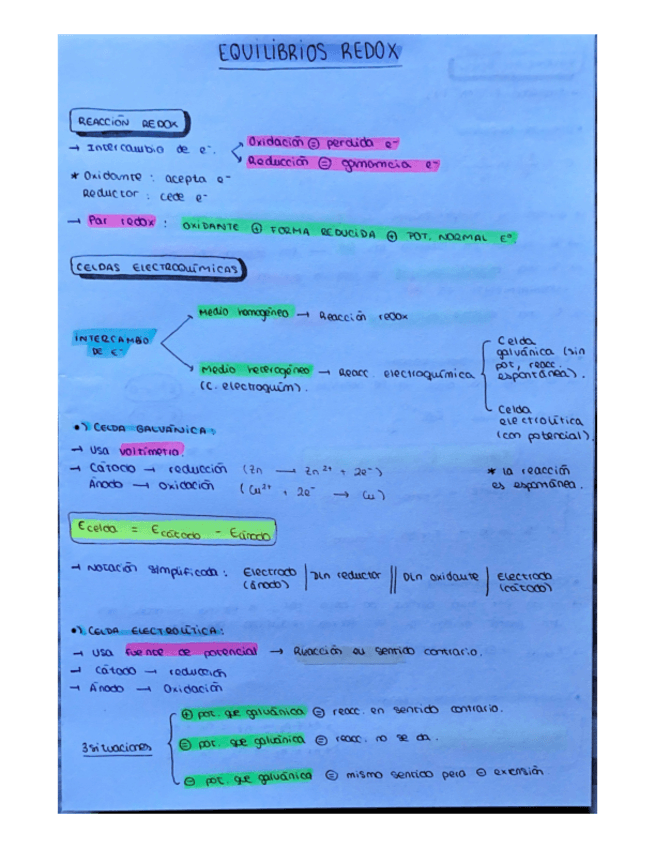 EQUILIBRIOS REDOX
REACCIÓN REDOX
→ Intercambio de e⁻. Oxidación ⊜ perdida e⁻
Reducción ⊜ ganancia e⁻
* Oxidante : acepta e⁻
Reductor : cede e⁻
→ Par redox : OXIDANTE ⊕ FORMA REDUCIDA ⊕ POT. NORMAL Eº.
CELDAS ELECTROQUÍMICAS
INTERCAMBO DE e⁻
Medio homogéneo → Reacción redox
Medio heterogéneo (C. electroquím). → Reacc. electroquímica
Celda galvánica (sin pot, reacc. espontánea).
Celda electrolítica (con potencial).
•) CELDA GALVÁNICA:
→ Usa voltímetro.
→ Cátodo → reducción (Zn → Zn²⁺ + 2e⁻)
Ánodo → Oxidación (Cu²⁺ + 2e⁻ → Cu)
* la reacción es espontánea.
Ecelda = Ecátodo - Eánodo
→ Notación simplificada : Electrodo (ánodo) | Dln reductor || Dln oxidante | Electrodo (cátodo)
•) CELDA ELECTROLÍTICA:
→ Usa fuente de potencial → Reacción en sentido contrario.
→ Cátodo → reducción
→ Ánodo → Oxidación
3 situaciones
⊕ pot. que galvánica ⊜ reacc. en sentido contrario.
⊜ pot. que galvánica ⊜ reacc. no se da.
⊖ pot. que galvánica ⊜ mismo sentido pero ⊖ extensión